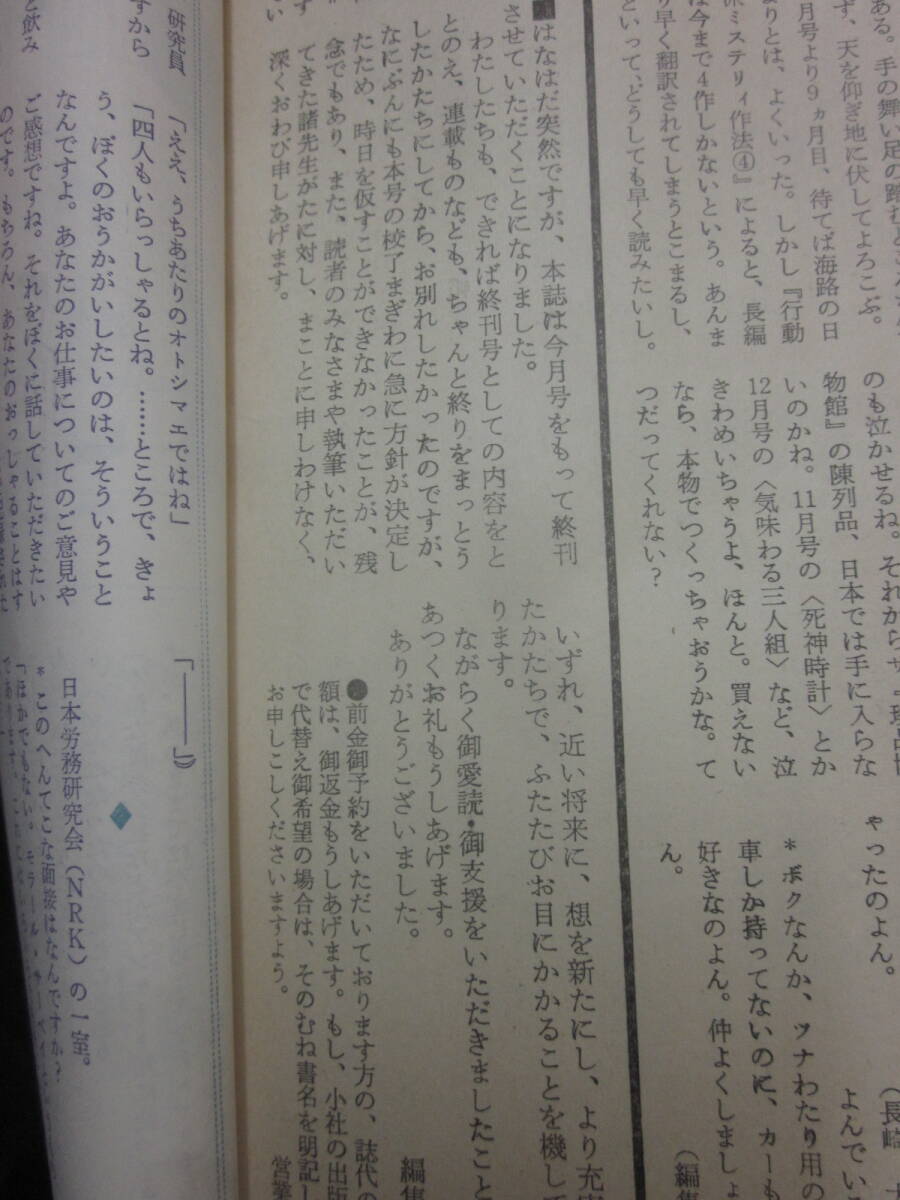 ある。手の舞い足の踏むと
ず、天を仰ぎ地に伏してよろこぶ。
月号より9ヵ月目、待てば海路の日
よりとは、よくいった。しかし『行動
ミステリィ作法④』によると、長編
は今まで4作しかないという。あんま
り早く翻訳されてしまうとこまるし、
といって、どうしても早く読みたいし。
のも泣かせるね。それから
物館』の陳列品、日本では手に入らな
いのかね。11月号の〈死神時計〉とか
12月号の〈気味わる三人組〉など、泣
きわめいちゃうよ、ほんと。買えない
なら、本物でつくっちゃおうかな。て
つだってくれない?
ゃったのよん。
*ボクなんか、ツナわたり用の
車しか持ってないのに、カーも
好きなのよん。仲よくしましょ
ん。
(長崎
よんでい
(編集
はなはだ突然ですが、本誌は今月号をもって終刊
させていただくことになりました。
わたしたちも、できれば終刊号としての内容をと
とのえ、連載ものなども、ちゃんと終りをまっとう
したかたちにしてから、お別れしたかったのですが、
なにぶんにも本号の校了まぎわに急に方針が決定し
たため、時日を仮すことができなかったことが、残
念でもあり、また、読者のみなさまや執筆いただい
てきた諸先生がたに対し、まことに申しわけなく、
深くおわび申しあげます。
いずれ、近い将来に、想を新たにし、より充実
たかたちで、ふたたびお目にかかることを機して
ります。
ながらく御愛読・御支援をいただきましたこと
あつくお礼もうしあげます。
ありがとうございました。
編集
●前金御予約をいただいております方の、誌代の
額は、御返金もうしあげます。もし、小社の出版
で代替え御希望の場合は、そのむね書名を明記し
お申しこしくださいますよう。
営業
研究員
すから
と飲み
「ええ、うちあたりのオトシマエではね」
「四人もいらっしゃるとね。……ところで、きょ
う、ぼくのおうかがいしたいのは、そういうこと
なんですよ。あなたのお仕事についてのご意見や
ご感想ですね。それをぼくに話していただきたい
のです。もちろん、あなたのおっしゃることはす
「———」
日本労務研究会(NRK)の一室。
*このへんてこな面接はなんですか?
「ほかでもない。モラール・サーベイ